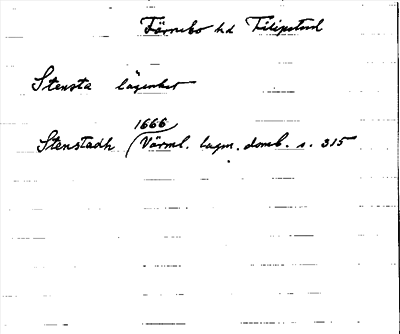 Färnebo hd Filipstad
Stensta lägenhet
1666
Stenstadh (Värml. lagm. domb. s. 315